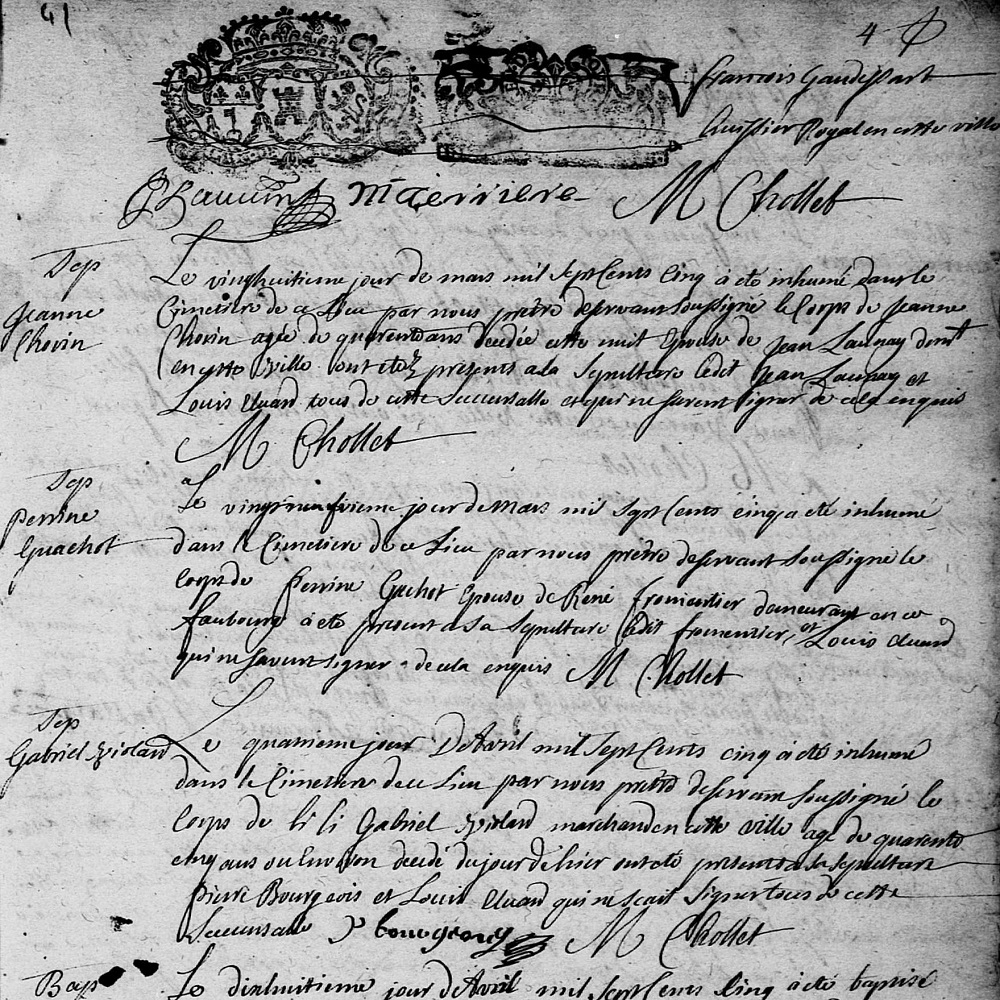 41
4
francois Gaudissart
huissier Royal en cette ville
M Gerriere
M Chollet
Sep
Jeanne
Chovin
Le vinghuitieme jour de mars mil sept Cents Cinq a été inhumé dans le
Cimetiere de ce Lieu par nous prêtre deservant soussigné le Corps de Jeanne
Chovin agée de quarente ans decedée cette nuit Epouse de Jean Launay demt
en cette ville ont etez presents a la Sepulture Ledit Jean Launay et
Louis Evard tous de cette Succursalle et qui ne savent signer de cela enquis
M Chollet
Sep
Perrine
Guachot
Le vingt neufvieme jour de Mars mil sept Cents cinq a été inhumé
dans le Cimetiere de ce Lieu par nous prêtre deservant soussigné le
Corps de Perrine Guchot Epouse de René fromentier demeurant en ce
faubourg a été present a sa Sepulture Ledit fromentier, et Louis Evard
qui ne savent signer de cela enquis M Chollet
Sep
Gabriel Violard
Le quatrieme jour D'Avril mil sept Cents cinq a été inhumé
dans le Cimetiere de ce Lieu par nous prêtre deservant soussigné le
Corps de Gabriel Violard marchand en cette ville agé de quarente
cinq ans ou Environ decedé du jour d'hier ont été presents a la sepulture
Pierre Bourgeois et Louis Evard qui ne scait signer tous de cette
Succursale P bourgeoys M Chollet
Bap
Le dixhuitieme jour d'Avril mil sept Cents Cinq a été baptisé